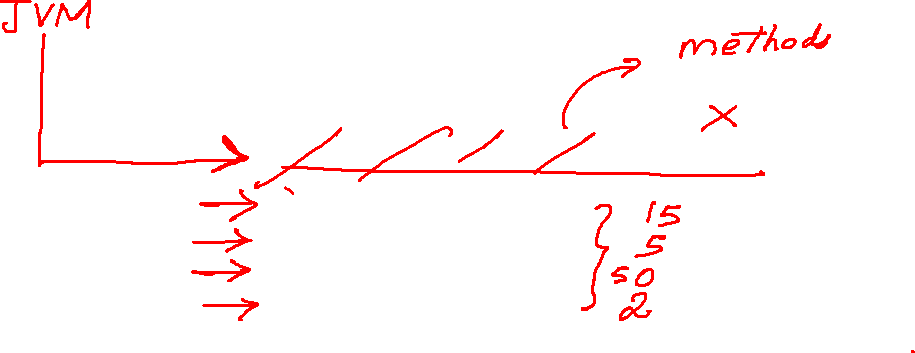 JVM
methods
X
15
5
50
2